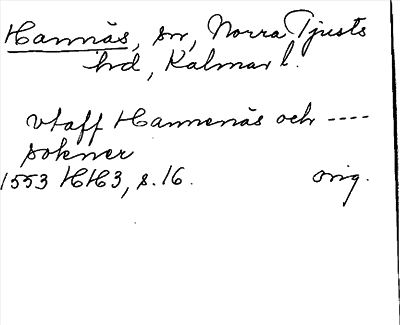 Hannäs, sn, Norra Tjusts
hd, Kalmar l.
vtaff Hannenäs och ----
sokner
1553 HH3, s. 16. orig.